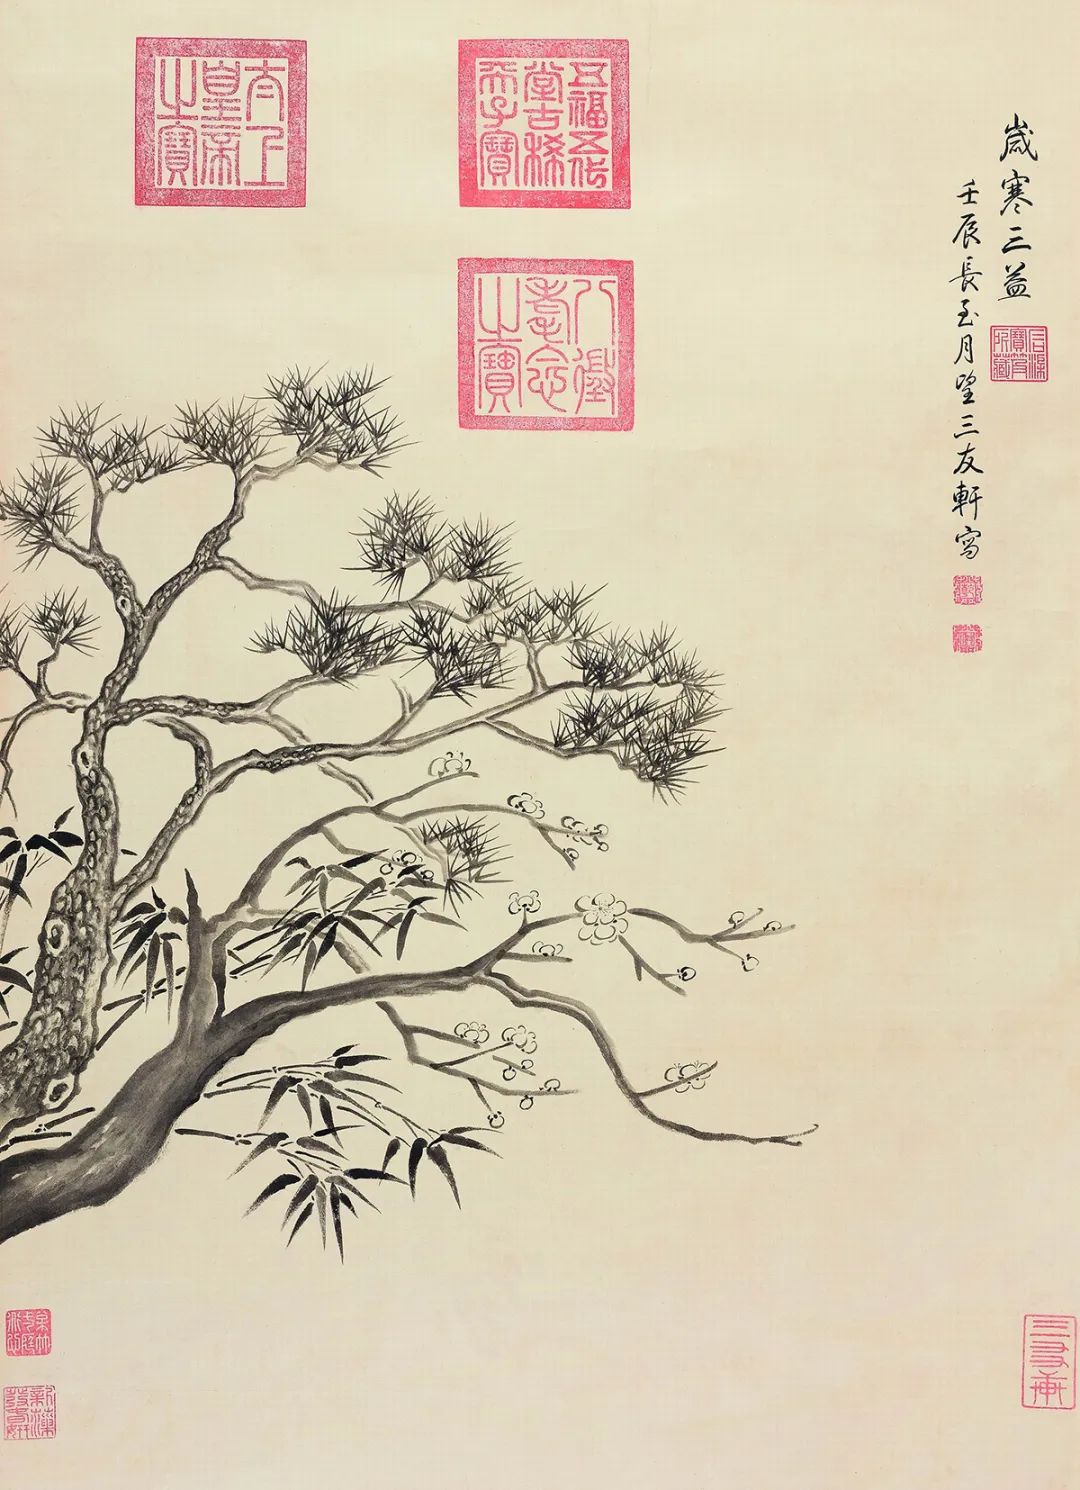 歲寒三益
壬辰長至月望三友軒寫
石渠寶笈所藏
五福五代堂古稀天子寶
八徵耄念之寶
太上皇帝之寶
三友軒